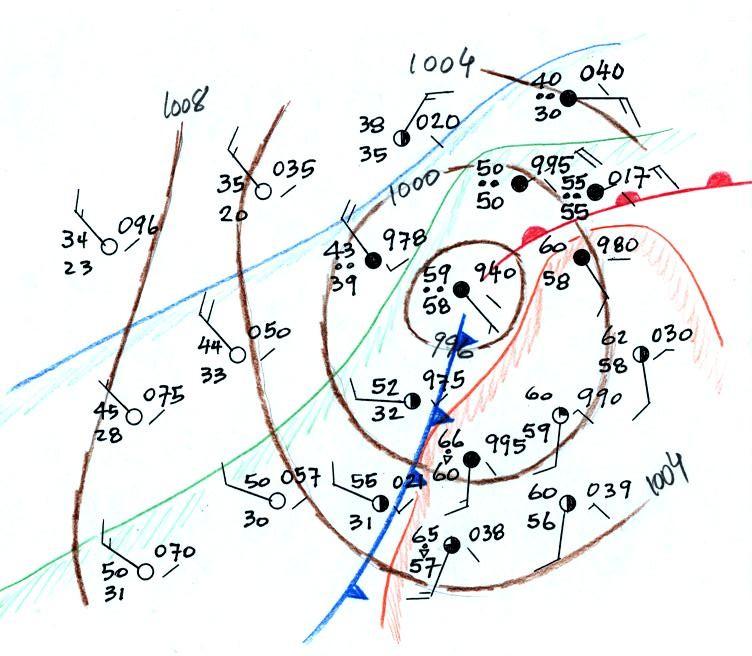 1004
40 040
30
1008
38 020
35
50 995
50
55 017
55
35 035
20
1000
34 096
23
43 978
39
60 980
58
59 940
58
996
44 050
33
62 030
58
52 975
32
45 075
28
60 990
59
66 995
60
50 057
30
55
31
60 039
56
1004
65 038
57
50 070
31